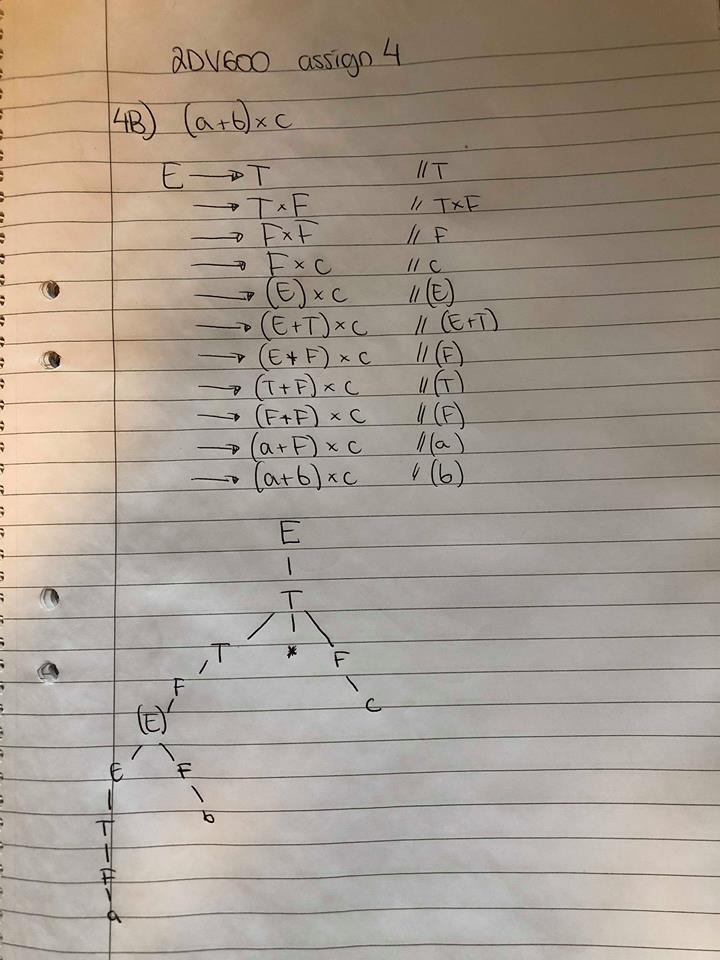 2DV600 assign 4
4B) (a+b)×c
E → T // T
→ T×F // T×F
→ F×F // F
→ F×c // c
→ (E)×c // (E)
→ (E+T)×c // (E+T)
→ (E+F)×c // (F)
→ (T+F)×c // (T)
→ (F+F)×c // (F)
→ (a+F)×c // (a)
→ (a+b)×c // (b)
E
T
T * F
F c
(E)
E F
b
T
F
a